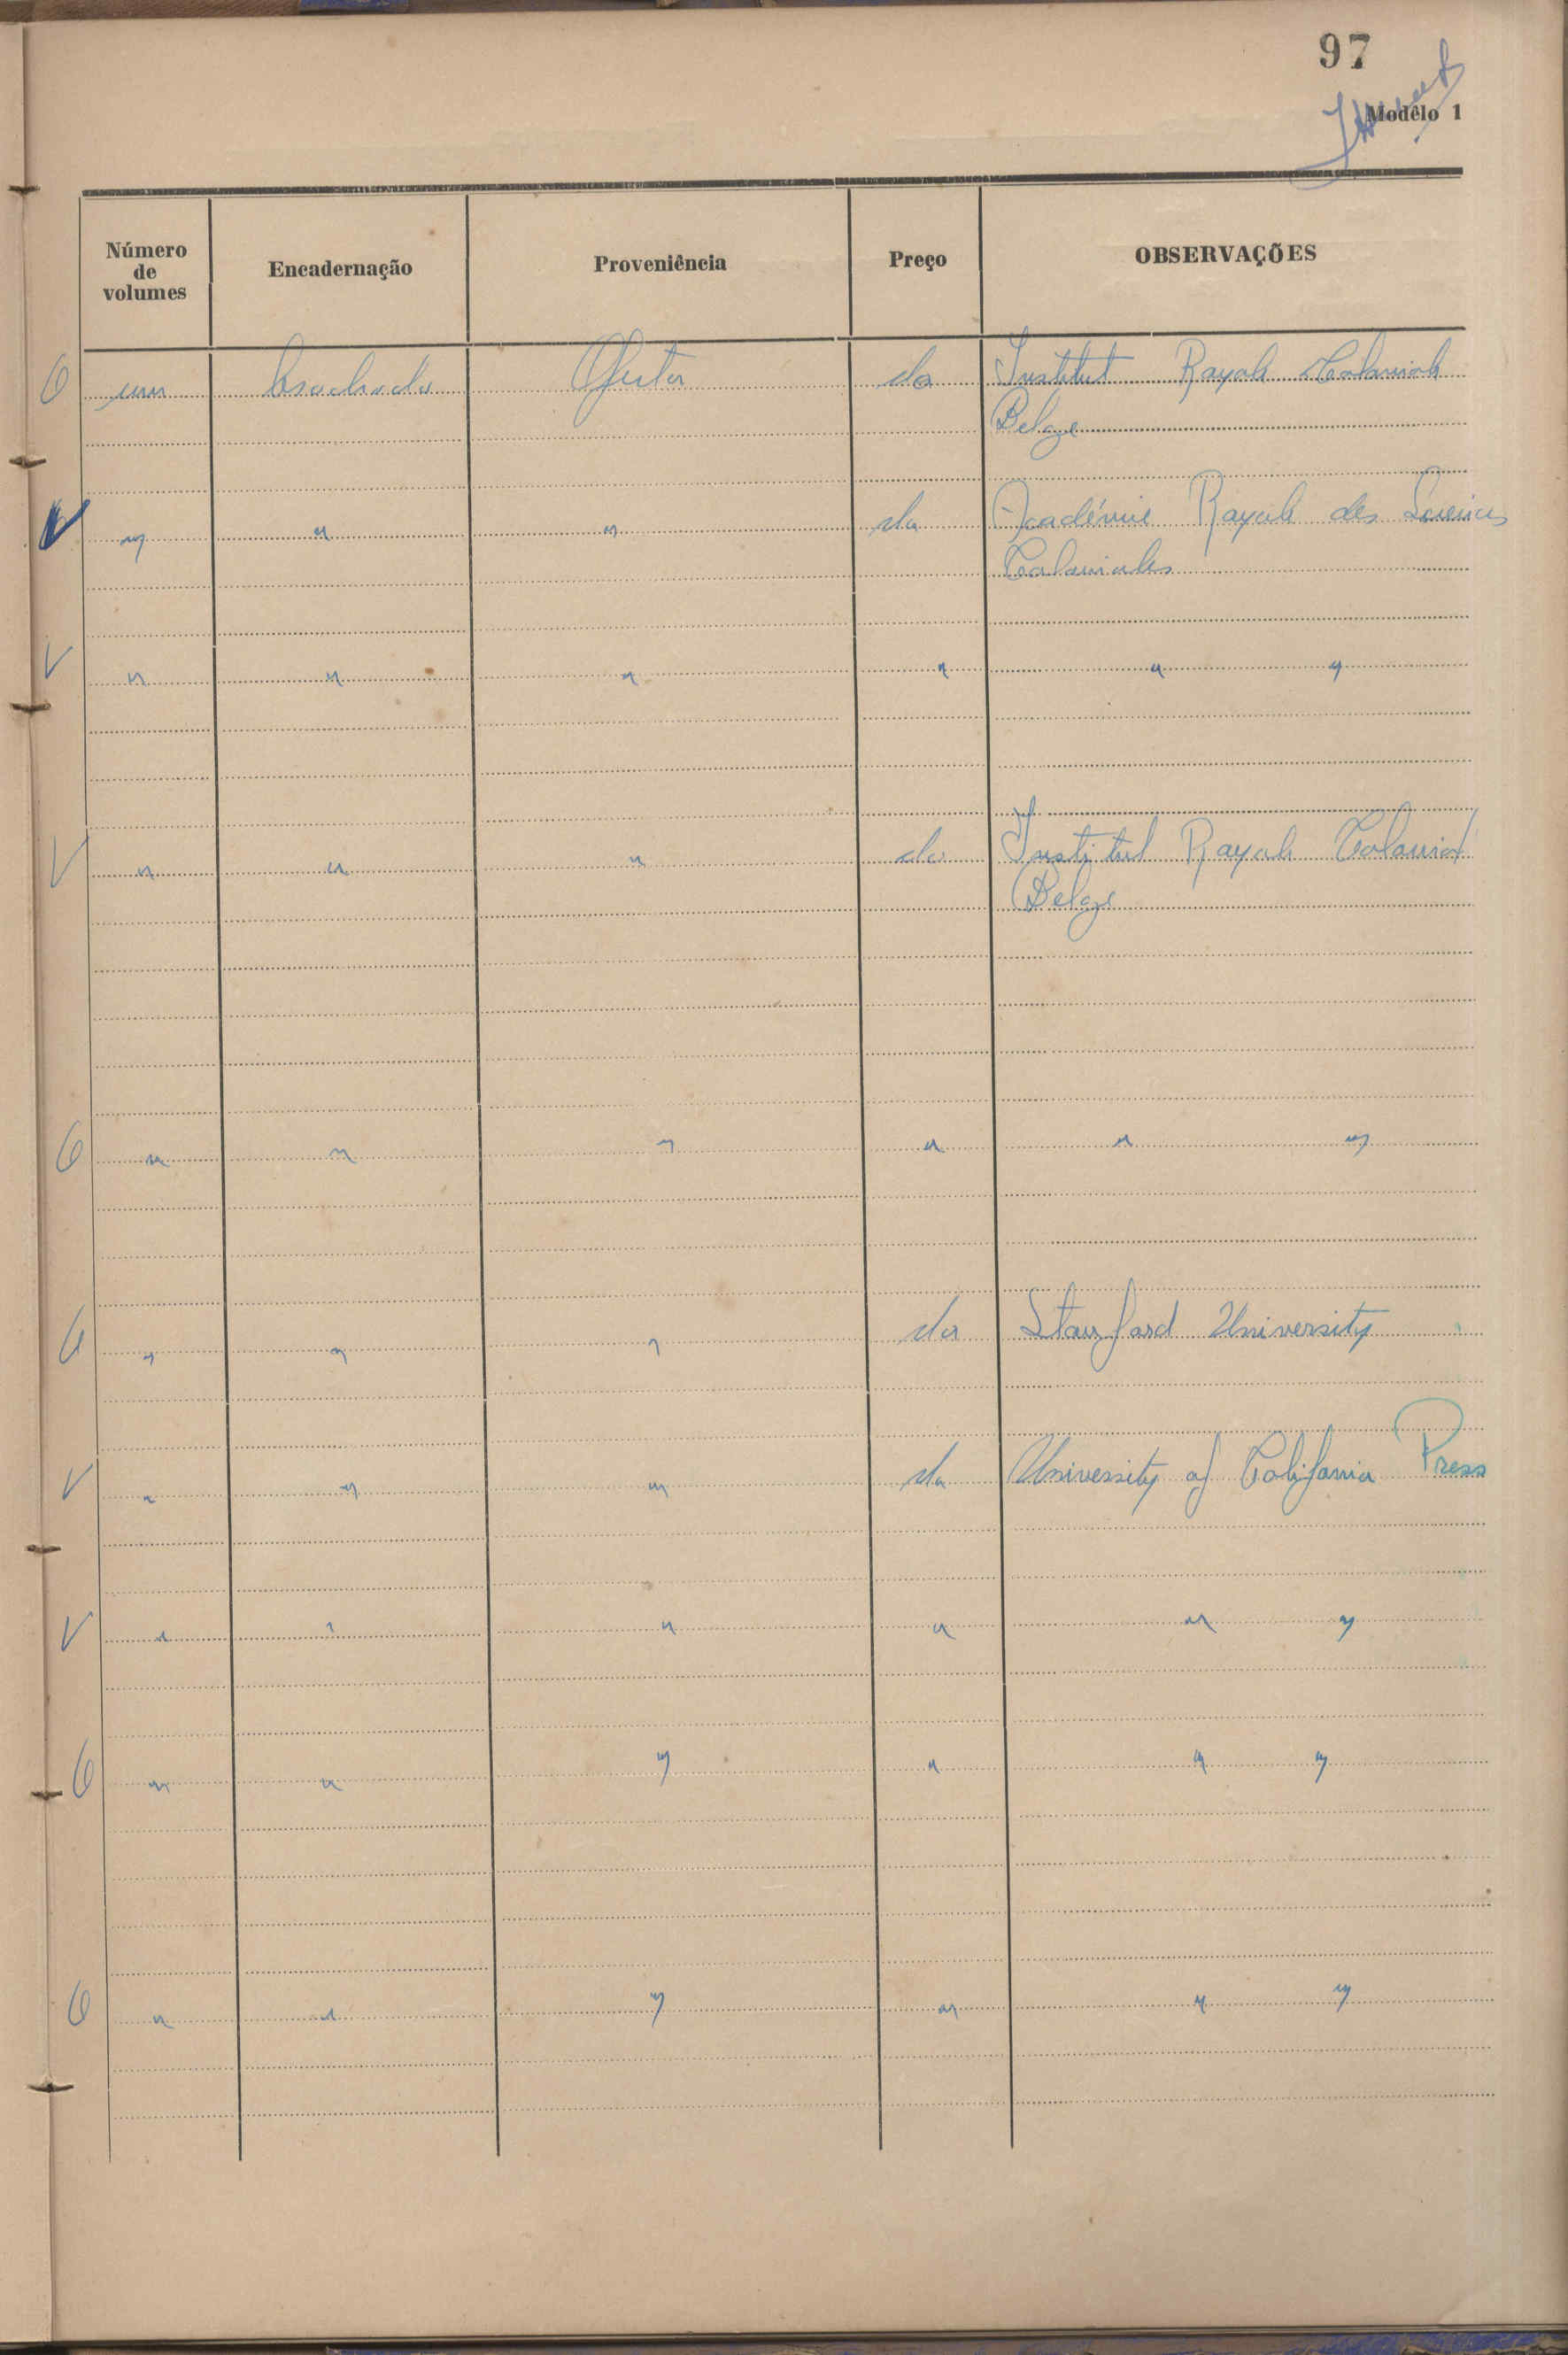 97
Modêlo 1
Número de volumes Encadernação Proveniência Preço OBSERVAÇÕES
um brochado Oferta do Institut Royale Coloniale
Belge
" " " da Académie Royale des Sciences
Coloniales
V " " " " " "
V " " " do Institut Royale Colonial
Belge
" " " " " "
" " " da Stanford University
V " " " da University of California Press
V " " " " " "
" " " " " "
" " " " " "